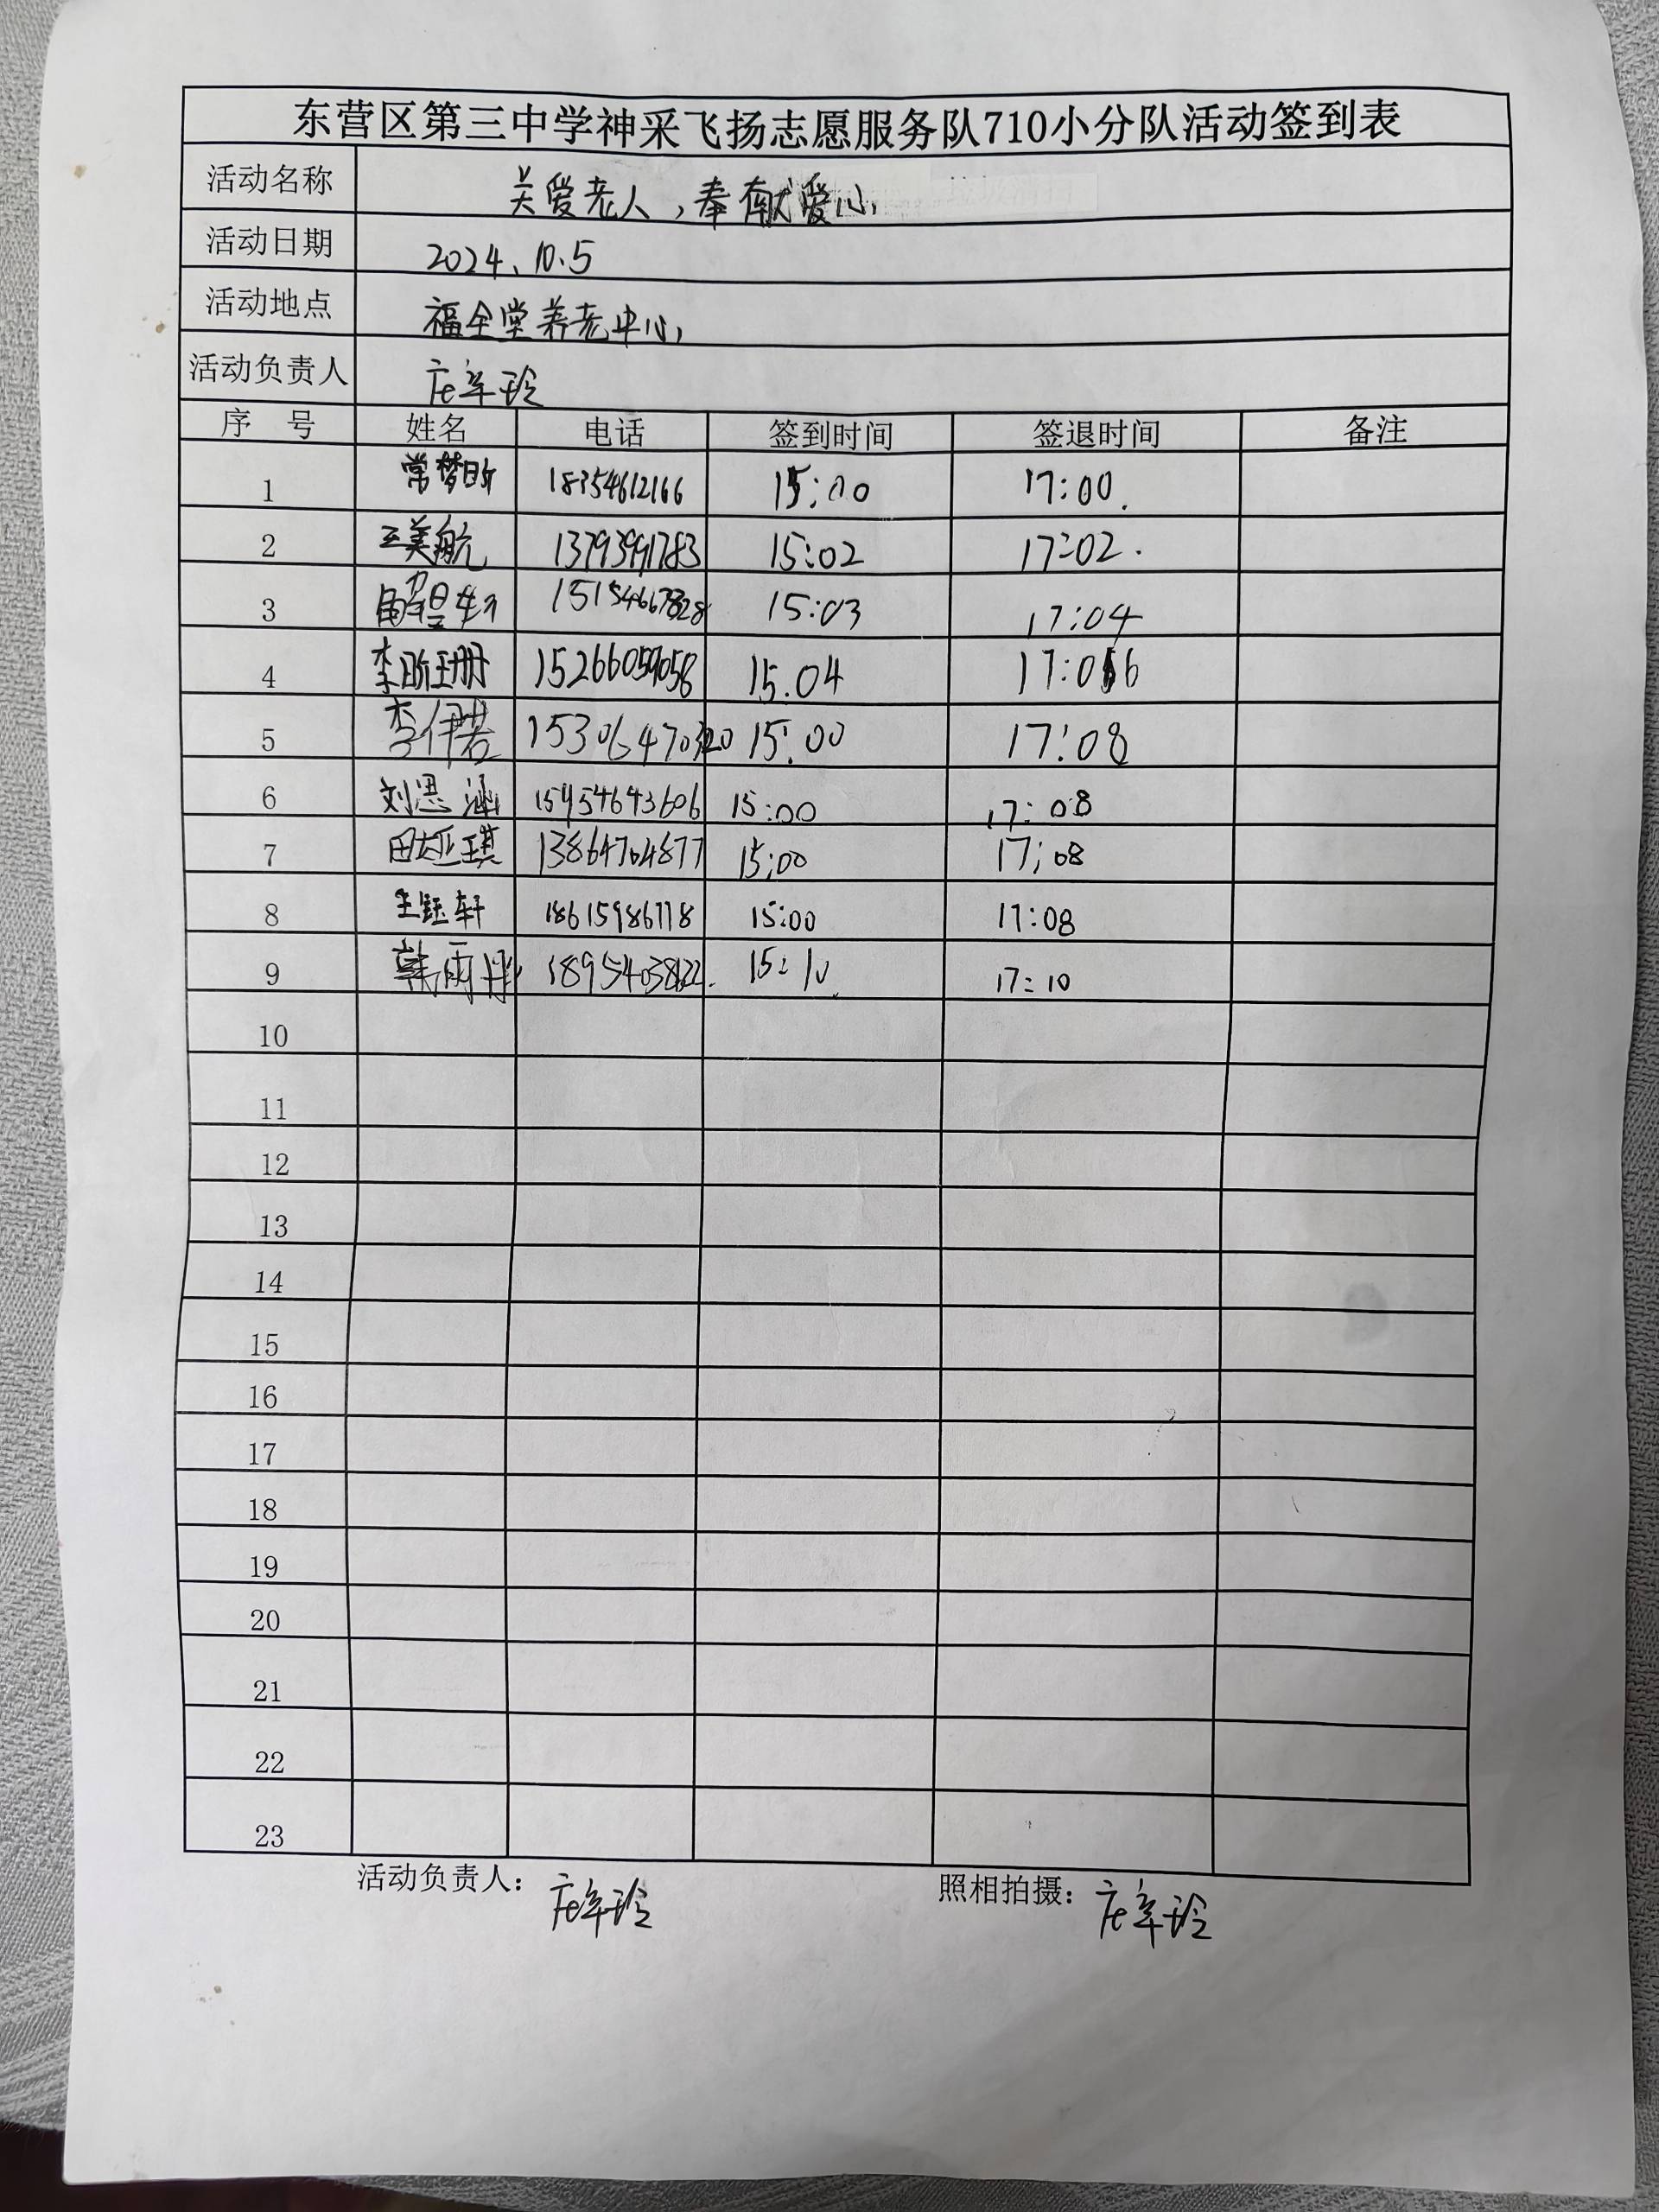 东营区第三中学神采飞扬志愿服务队710小分队活动签到表
活动名称 关爱老人，奉献爱心
活动日期 2024、10、5
活动地点 福全堂养老中心
活动负责人
序 号 姓名 电话 签到时间 签退时间 备注
1 常梦昕 18354612166 15:00 17:00.
2 王美航 13793991783 15:02 17:02.
3 15154667828 15:03 17:04
4 李昕珊 15266059058 15.04 17:06
5 李伊若 15:00 17:08
6 刘思涵 15954643606 15:00 17:08
7 13864704877 15:00 17;08
8 王钰轩 18615986778 15:00 17:08
9 韩雨彤 15:10 17:10
10
11
12
13
14
15
16
17
18
19
20
21
22
23
活动负责人： 照相拍摄：